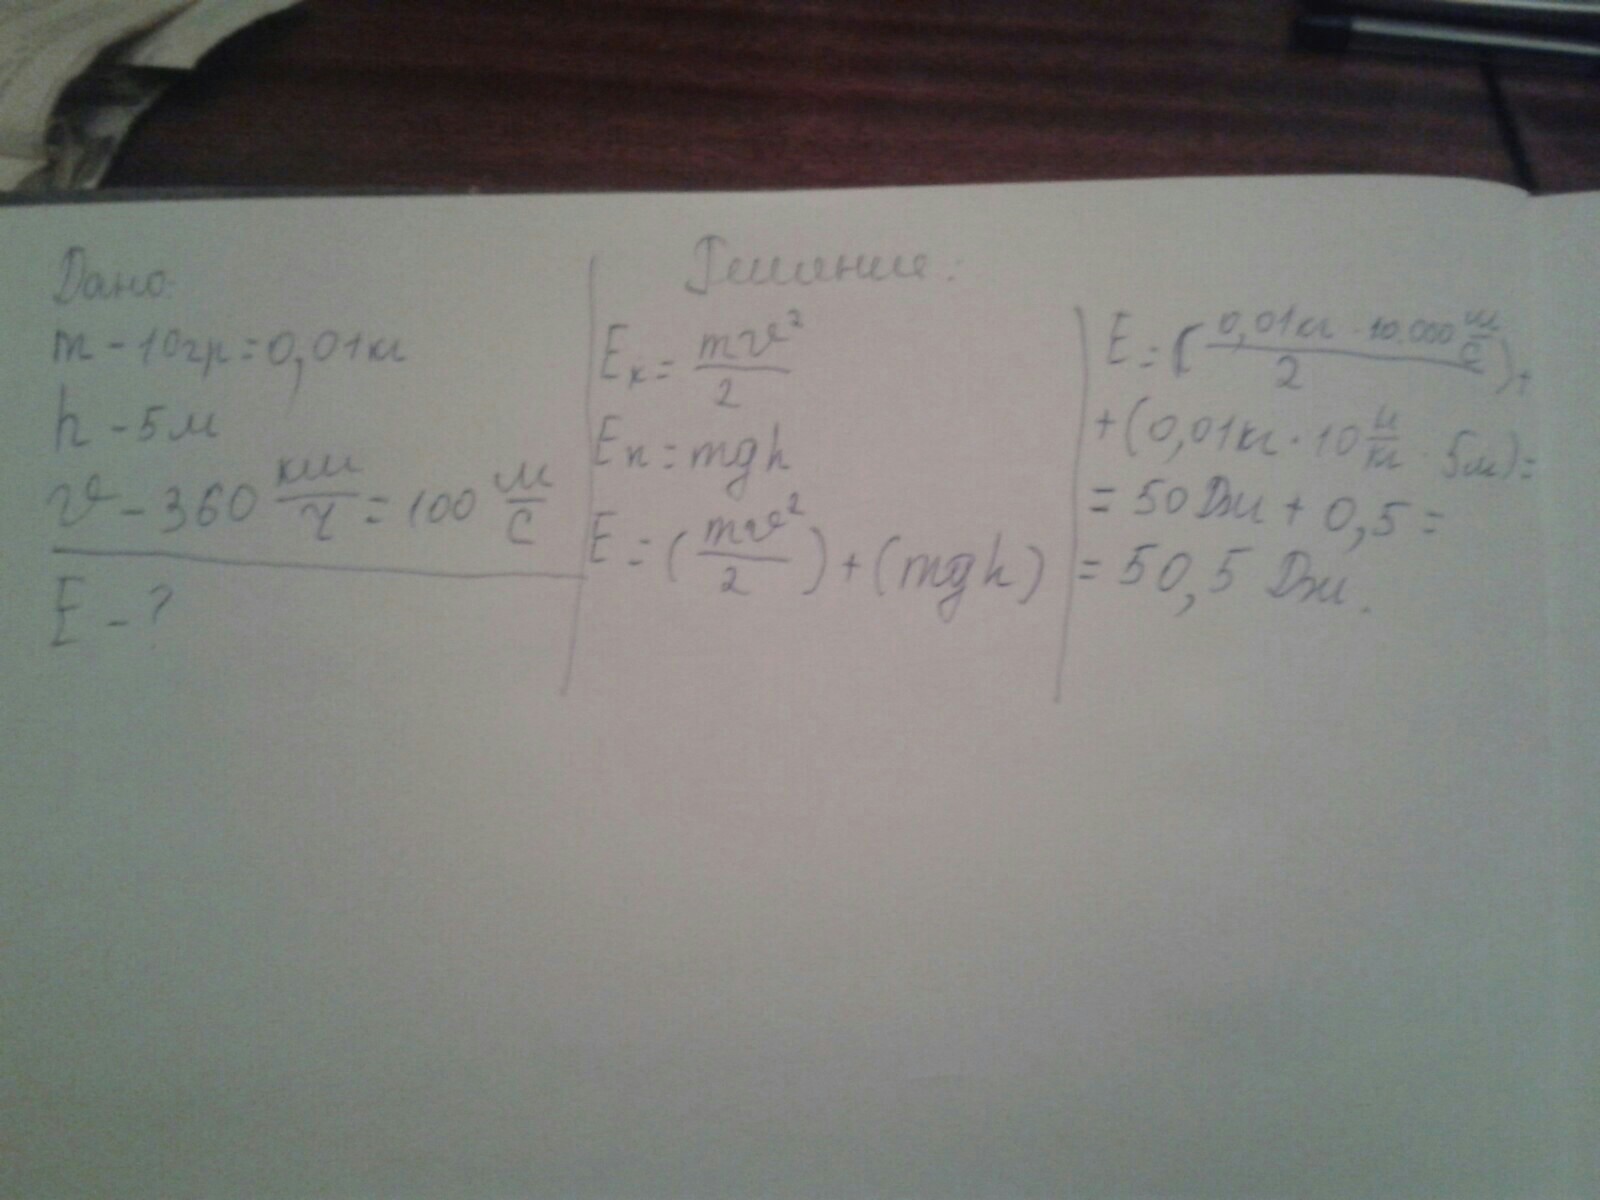 Дано:
m - 10гр = 0,01кг
h - 5м
v - 360 км/ч = 100 м/с
E - ?
Решение:
Eк = mv²/2
Eп = mgh
E = (mv²/2) + (mgh)
E = (0,01кг · 10.000 м/с / 2) +
+ (0,01кг · 10 н/кг · 5м) =
= 50 Дж + 0,5 =
= 50,5 Дж.